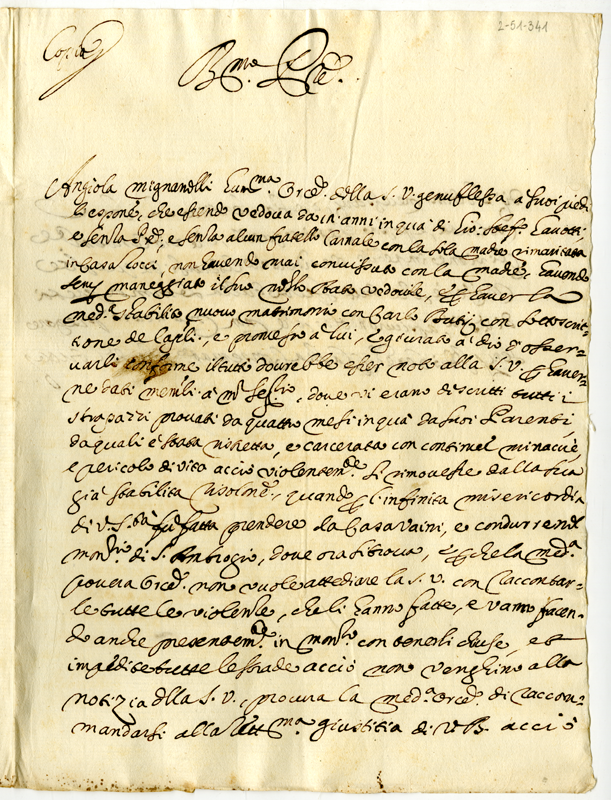 2-51-341
Copia
B.mo P.re
Angiola Mignanelli hum.ma Or.ce della S. V. genuflessa a suoi piedi
le espone, che essendo vedova da in anni in qua di Gio: Stef.o Lavotti,
e senza P.re, e senza alcun fratello Carnale con la sola madre rimaritata
in Casa Rocci, non havendo mai convissuto con la madre, havendo
maneggiato il suo nello stato vedovile, et haver la
med.a stabilito nuovo matrimonio con Carlo Buti con sottoscrit-
tione de Capli., e promesso à lui, e giurato à Dio d'osser-
varli conforme il tutto dovrebbe esser noto alla S. V. per haver-
ne dati à m.r dove vi erano descritti tutti i
strapazzi provati da quattro mesi in qua da suoi Parenti,
da quali è stata ristretta, e carcerata con continue minacie,
e pericolo di vita acciò violentem.te si rimovesse dalla sua
già stabilita risolne., quando per l'infinita misericordia
di V. S.tà fù fatta prendere da Casa Vaini, e condurre nel
mon.rio di S. Ambrogio, dove ora si trova, e perche la med.a
povera Or.ce non vuole attediare la S. V. con raccontar-
le tutte le violenze, che li hanno fatte, e vanno facen-
do anche presentem.te in mon.rio con tenerli chiuse, et
impedite tutte le strade acciò non venghino alla
notizia della S. V., procura la med.a Or.ce di raccom-
mandarsi alla giustitia di V. B. acciò